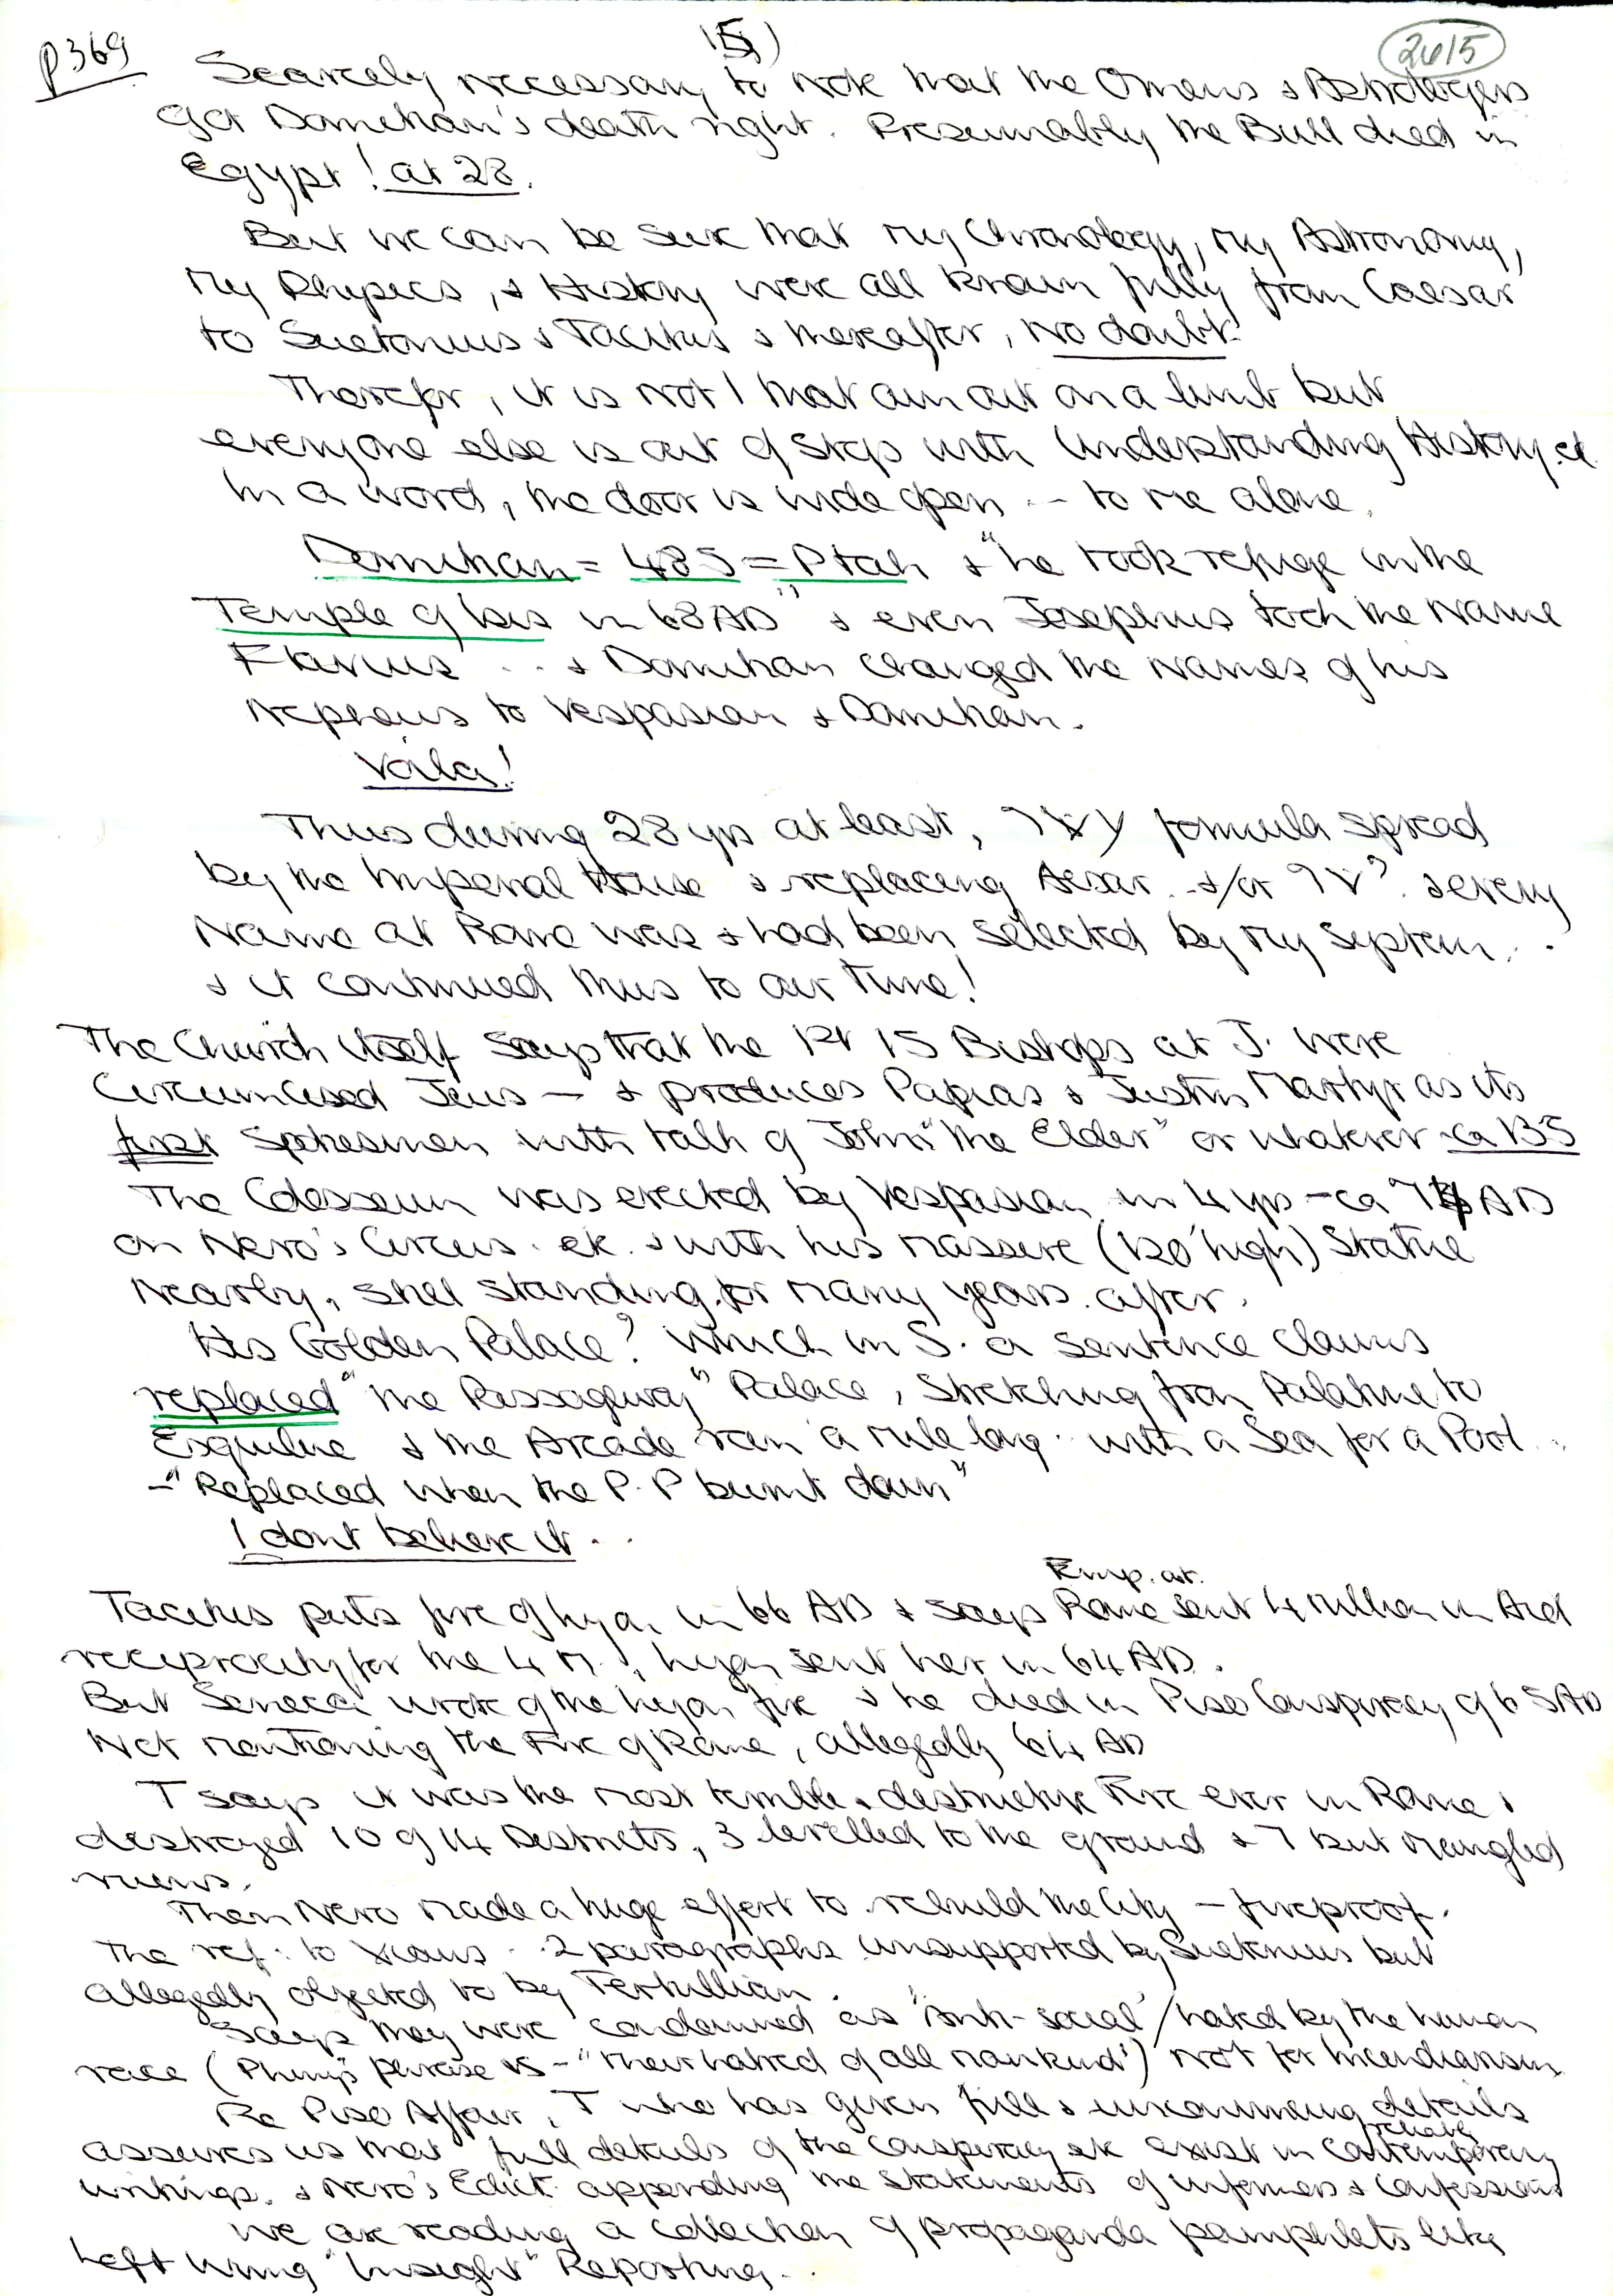 p369
15)
2615
Scarcely necessary to note that the Omens & Astrologers
get Domitian's death right. Presumably the Bull died in
Egypt! at 28.
But we can be sure that my Chronology, my Astronomy,
my Physics, & History were all known fully from Caesar
to Suetonius & Tacitus & thereafter, no doubt.
Therefor, it is not I that am out on a limb but
everyone else is out of step with Understanding History. et
In a word, the door is wide open -- to me alone.
Domitian = 485 = Ptah & "he took refuge in the
Temple of Isis in 68 AD" & even Josephus took the Name
Flavius ... & Domitian changed the names of his
Nephews to Vespasian & Domitian.
Voila!
Thus during 28 yrs at least, formula spread
by the Imperial House & replacing Aesar. &/or & every
Name at Rome was & had been selected by my system..
& it continued thus to our Time!
The Church itself says that the 1st 15 Bishops at J. were
Circumcised Jews — & produces Papias & Justin Martyr as its
first spokesmen with talk of John "the Elder" or whatever ca 135
The Colosseum was erected by Vespasian in 4 yrs - ca AD
on Nero's Circus. etc. & with his massive (120' high) Statue
nearby, still standing for many years. after.
His Golden Palace? Which in S. a sentence claims
replaced "the Passageway" Palace, stretching from Palatine to
Esquiline & the Arcade ran a mile long. with a Sea for a Pool..
- "Replaced when the P.P burnt down"
I dont believe it..
Emp. at.
Tacitus puts fire of Lyon in 66 AD & says Rome sent 4 million in Aid
reciprocity for the 4 M., Lyon sent her in 64 AD.
But Seneca wrote of the Lyon fire & he died in Piso Conspiracy of 65 AD
Not mentioning the Fire of Rome, allegedly 64 AD
T says it was the most terrible & destructive Fire ever in Rome &
destroyed 10 of 14 Districts, 3 levelled to the ground & 7 but mangled
ruins.
Then Nero made a huge effort to rebuild the City - fireproof.
The ref. to Xtians .. 2 paragraphs unsupported by Suetonius but
allegedly objected to by Tertullian.
Says they were condemned as 'anti-social'/hated by the human
race (Pliny's phrase is - "their hatred of all mankind") not for Incendiarism
Re Piso Affair, T who has given full & unconvincing details
assures us that full details of the conspiracy etc exist in Contemporary
writings. & Nero's Edict appending the statements of informers & confessions
We are reading a collection of propaganda pamphlets like
Left Wing "Insight" Reporting..